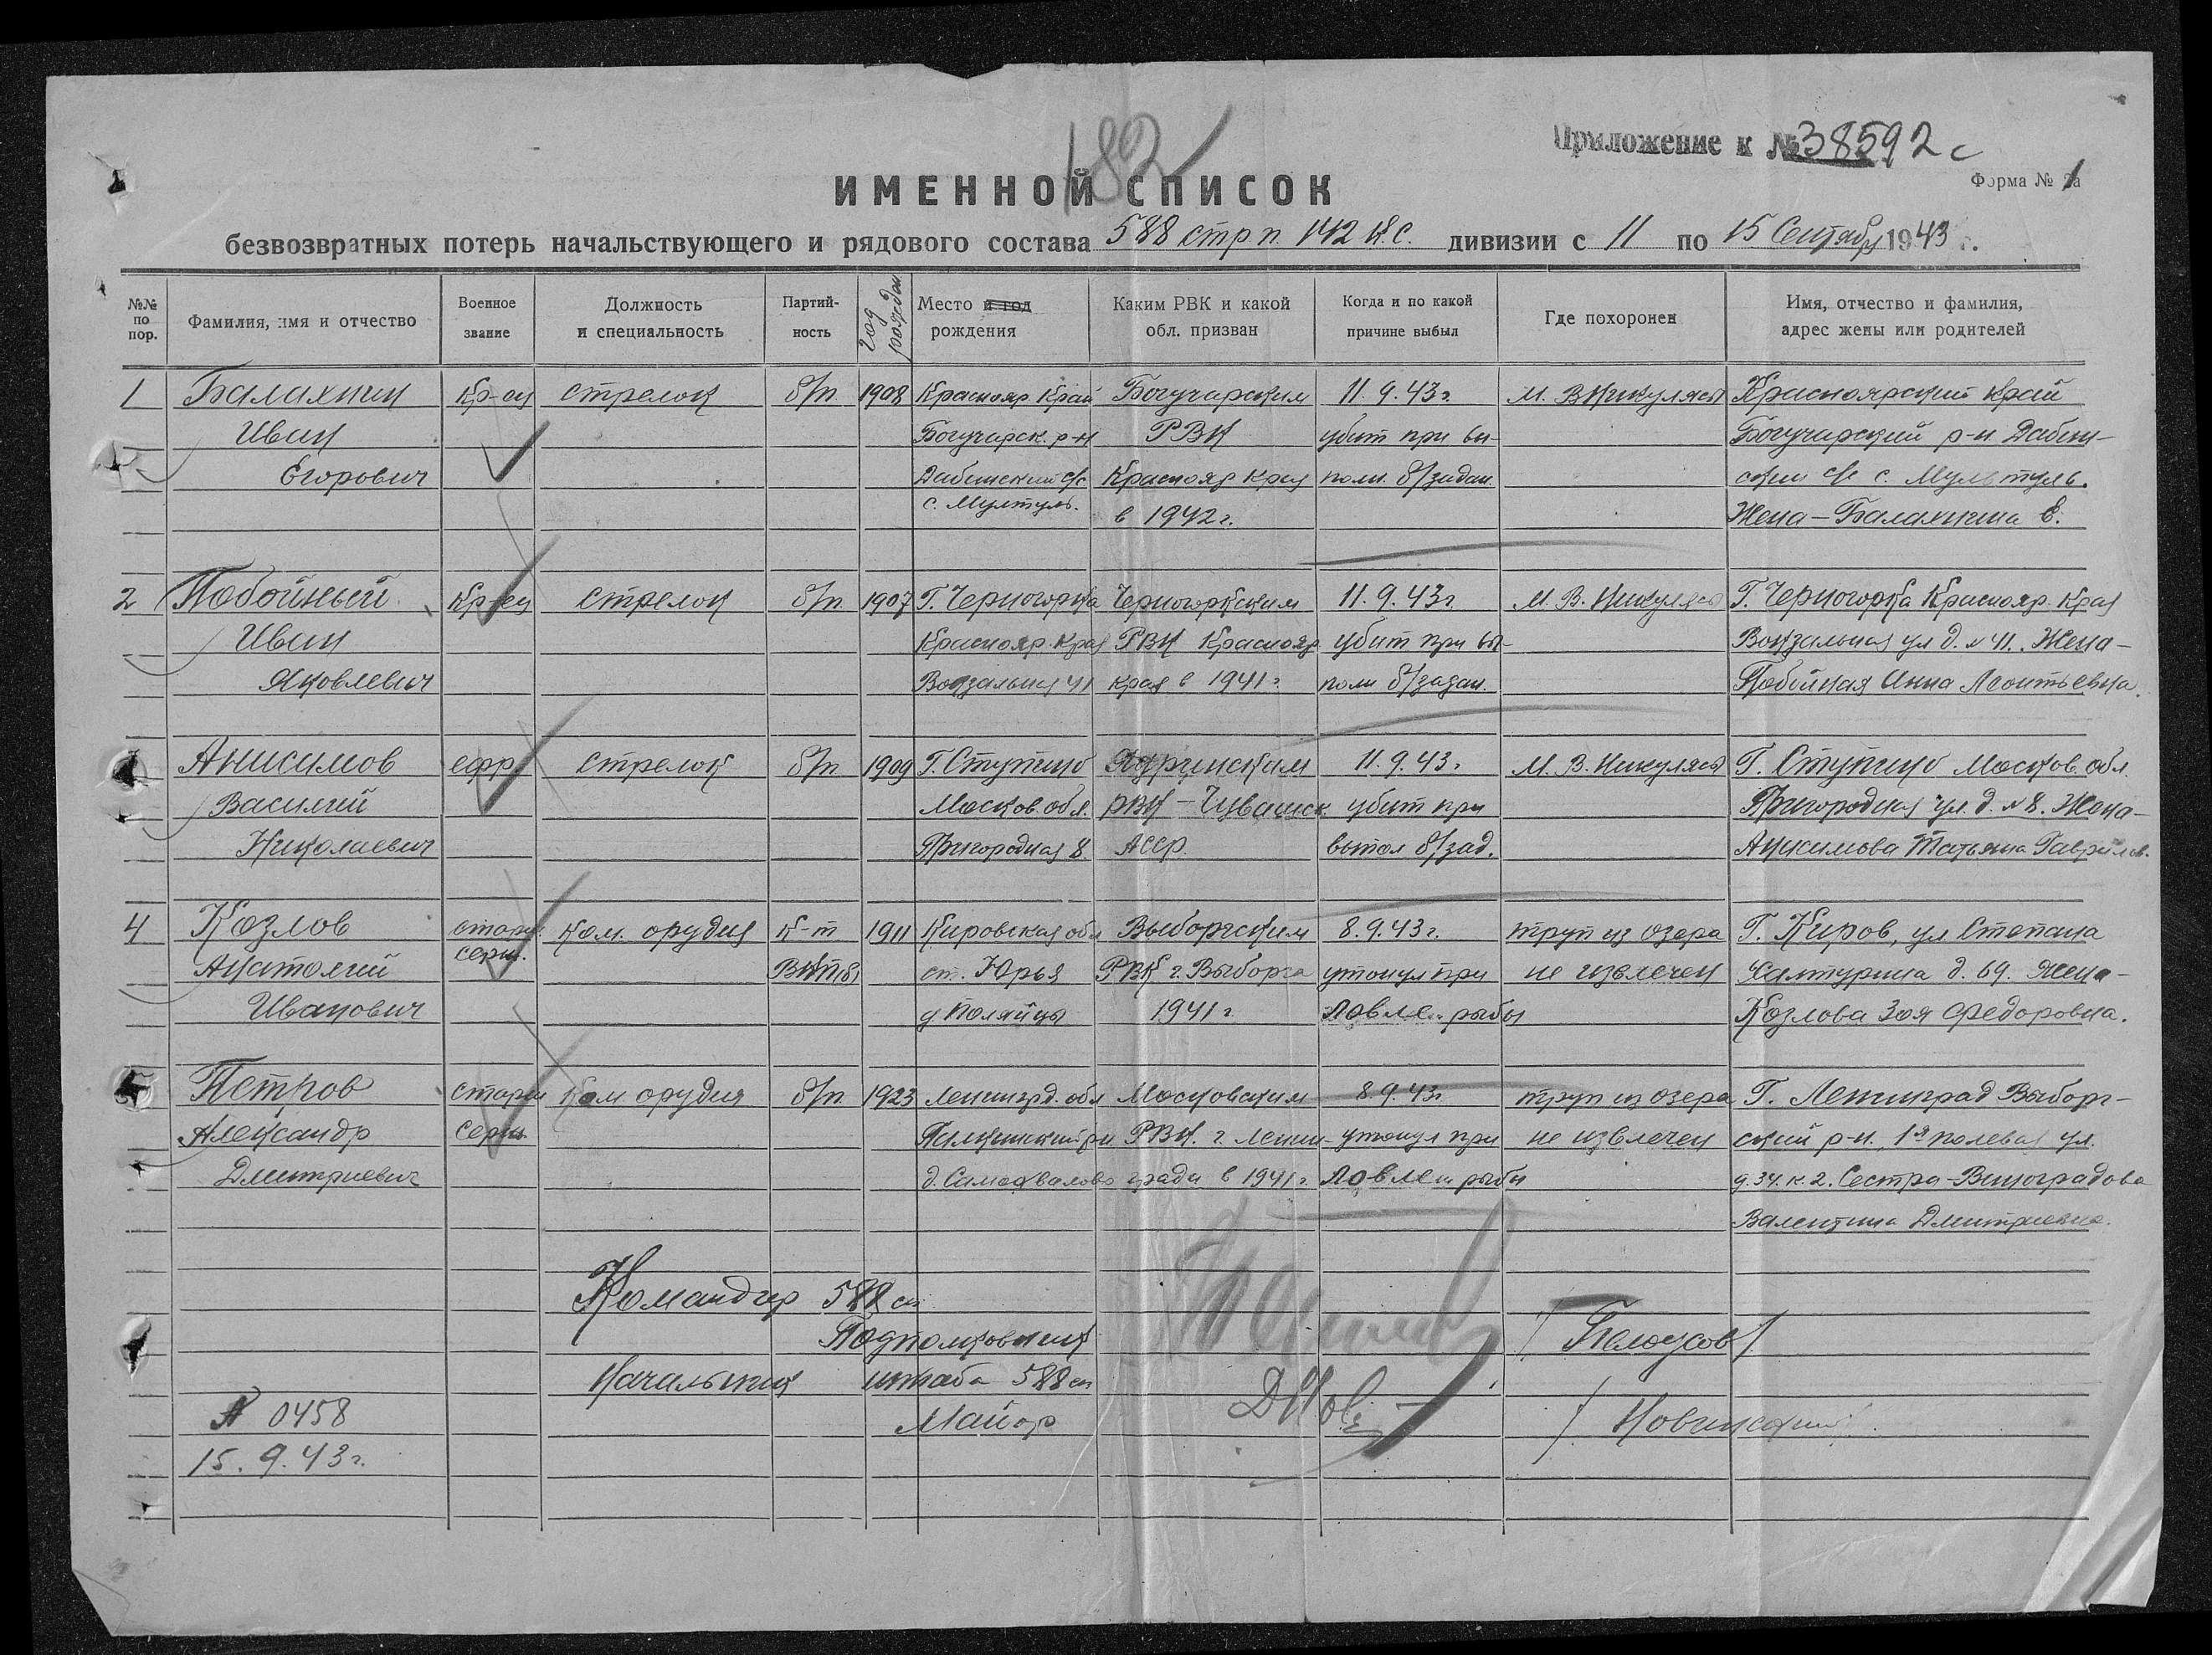 182
Приложение к №38592с
Форма № 1а
ИМЕННОЙ СПИСОК
безвозвратных потерь начальствующего и рядового состава 588 стр п. 142 К.С. дивизии с 11 по 15 Сентября 1943 г.
№№ по пор.
Фамилия, имя и отчество
Военное звание
Должность и специальность
Партий-ность
год рождения
Место и год рождения
Каким РВК и какой обл. призван
Когда и по какой причине выбыл
Где похоронен
Имя, отчество и фамилия, адрес жены или родителей
1 Балахнин Кр-ец стрелок б/п 1908 Краснояр Край Богучарским 11.9.43г. М. В Никулясы Красноярский край
Иван Богучарск. р-н РВК убит при вы- Богучарский р-н
Егорович с/с Краснояр края полн. б/задан с/с с. Мультуль.
с. Мултуль. в 1942г. Жена-Балахнина Е.
2 Побойный Кр-ец стрелок б/п 1907 Г. Черногорка Черногоркским 11.9.43г. М. В. Никулясы Г. Черногорка Краснояр. края
Иван Краснояр. края РВК Краснояр убит при вы- Вокзальная ул д. №41. Жена-
Яковлевич Вокзальная 41 края в 1941г. полн б/задан. Побойная Анна Леонтьевна.
3 Анисимов ефр. стрелок б/п 1909 Г. Ступино 11.9.43г. М. В. Никулясы Г. Ступино Москов. обл.
Василий Москов. обл. РВК-Чувашск. убит при Пригородная ул. д. №8. Жена-
Николаевич Пригородная 8 АССР. выпол б/зад. Анисимова Татьяна Гаврилов.
4 Козлов старш. Ком. орудия К-т 1911 Кировская обл Выборгским 8.9.43г. труп из озера Г. Киров, ул Степана
Анатолий серж. ВКП(б) ст. Юрья РВК г. Выборга утонул при не извлечен Халтурина д. 69. Жена-
Иванович д Поляйцы 1941г. ловле рыбы Козлова Зоя Федоровна.
5 Петров старш Ком орудия б/п 1923 Ленингр. обл Московским 8.9.43г. труп из озера Г. Ленинград Выборг-
Александр серж РВК. г. Ленин- утонул при не извлечен ский р-н. 1я полевая ул.
Дмитриевич д. Самохвалово града в 1941г. ловле рыбы д. 34. к. 2. Сестра-Виноградова
Валентина Дмитриевна.
Командир 588 сп
Подполковник /Белоусов/
Начальник штаба 588 сп
Майор /Новинский/
№ 0458
15.9.43г.